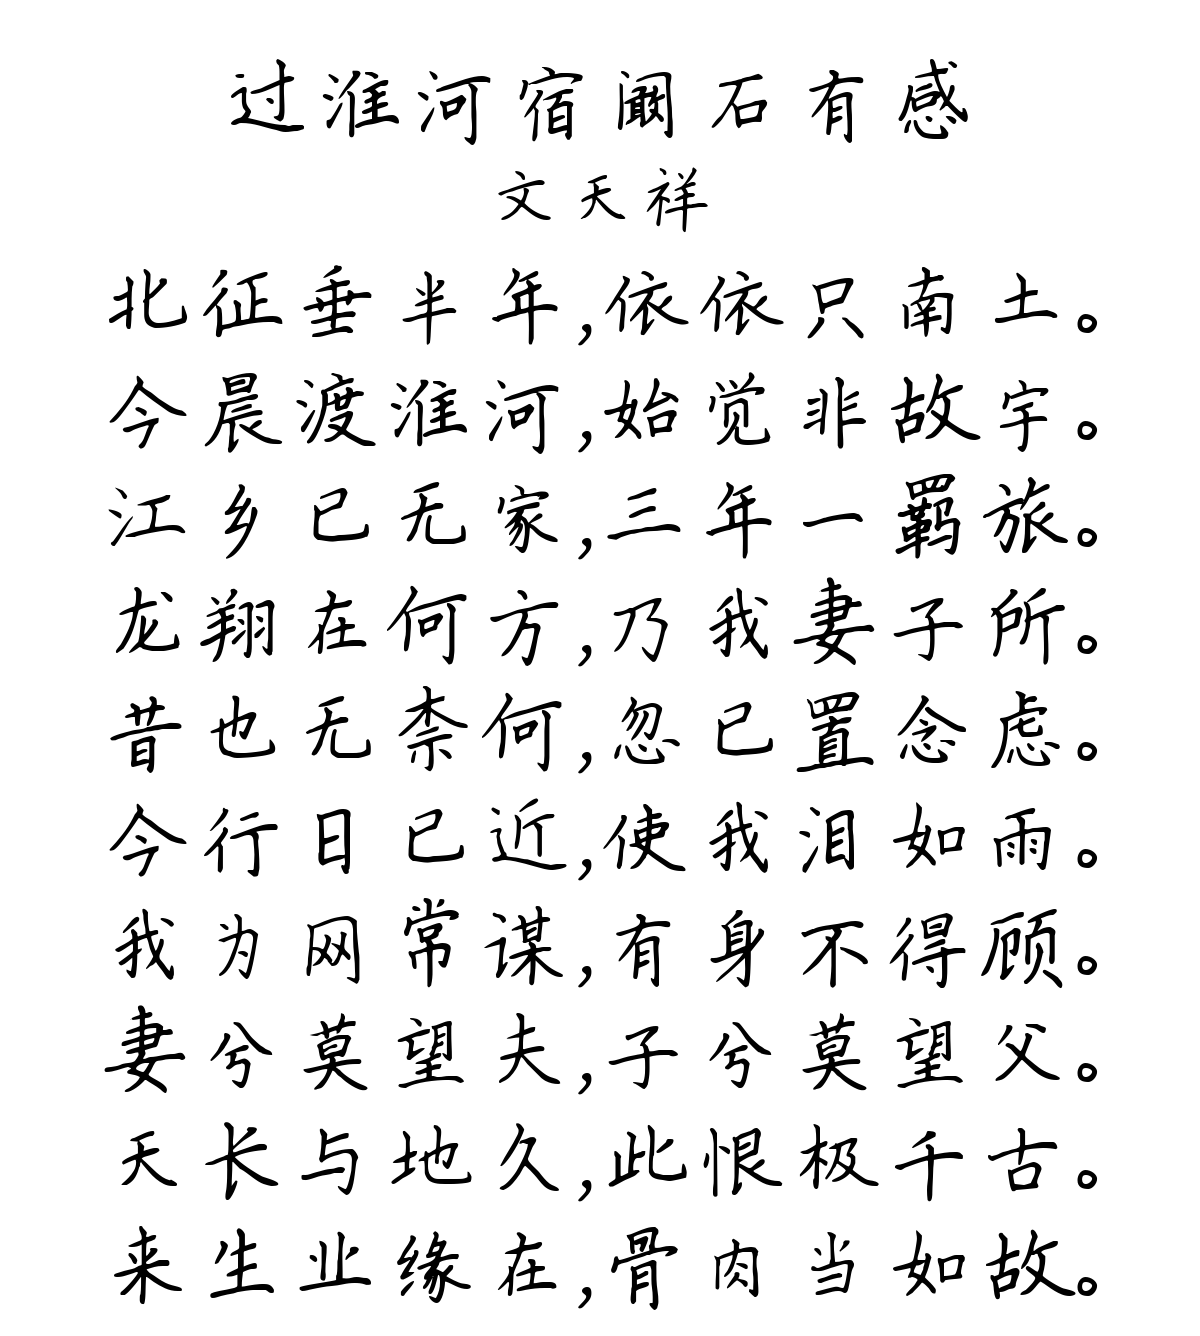 过淮河宿阚石有感
文天祥
北征垂半年,依依只南土。
今晨渡淮河,始觉非故宇。
江乡已无家,三年一羁旅。
龙翔在何方,乃我妻子所。
昔也无柰何,忽已置念虑。
今行日已近,使我泪如雨。
我为网常谋,有身不得顾。
妻兮莫望夫,子兮莫望父。
天长与地久,此恨极千古。
来生业缘在,骨肉当如故。